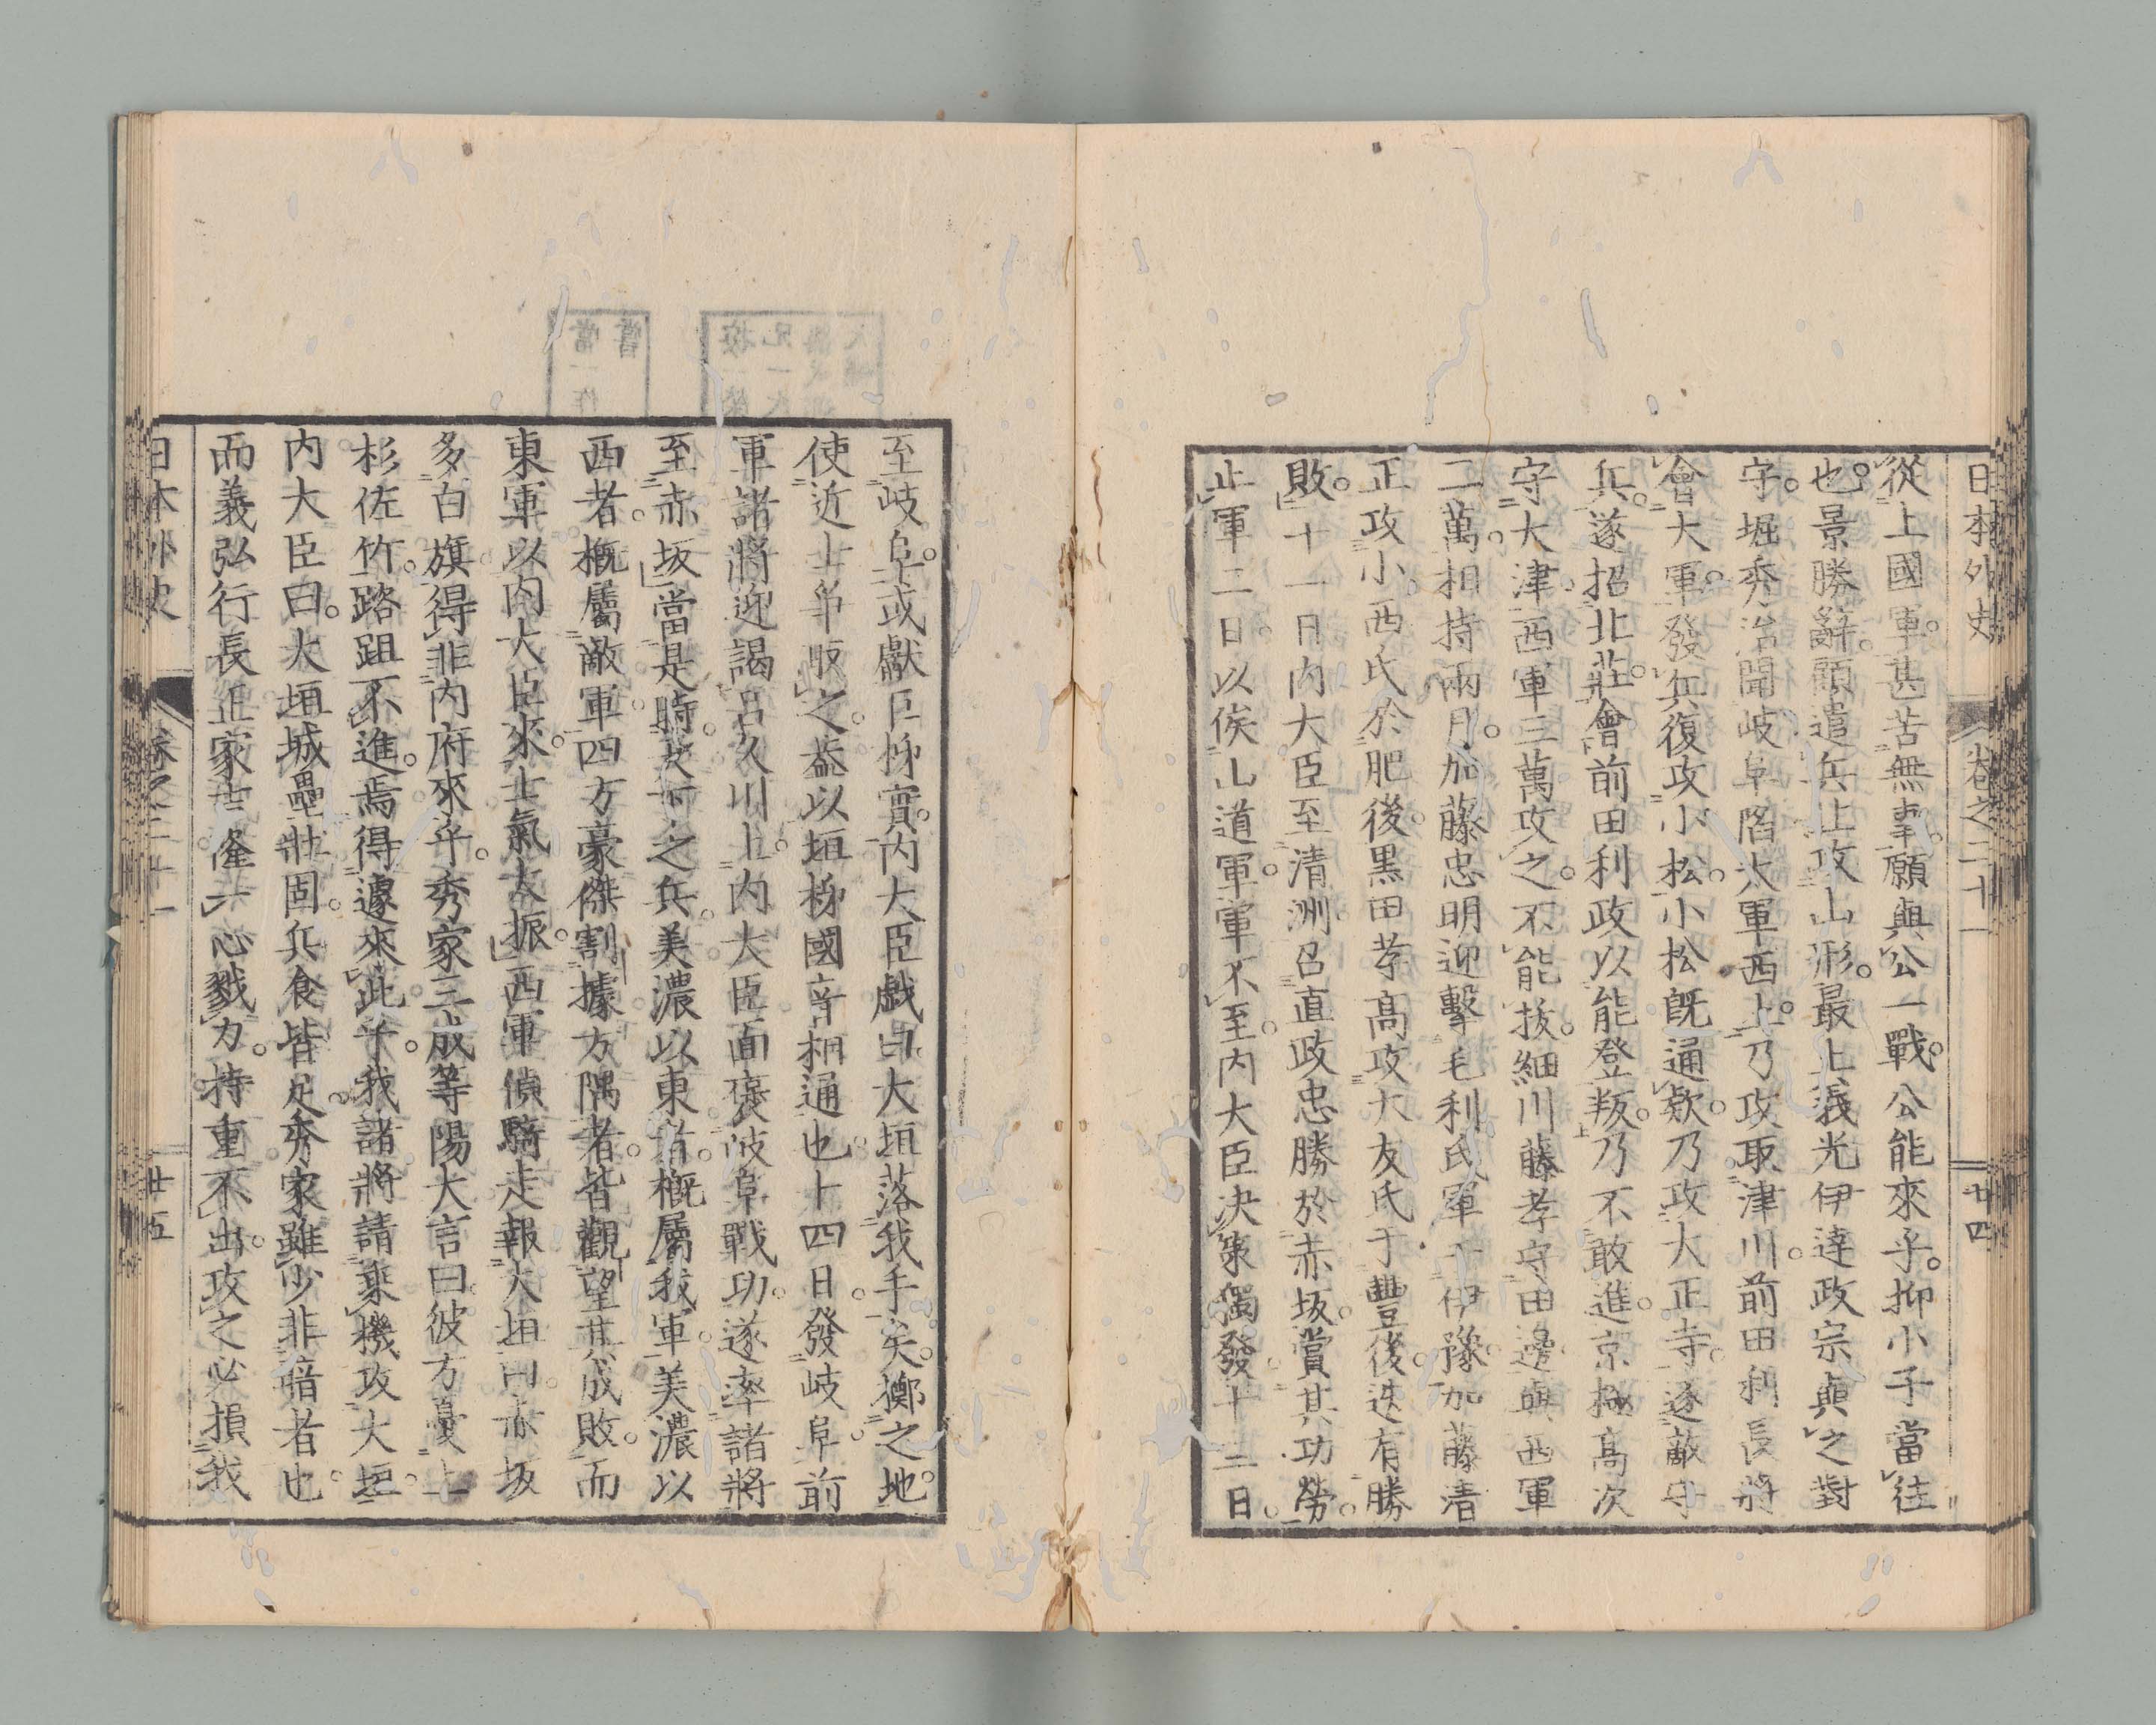 日本外史 卷之二十一 廿四
從上國軍。甚苦無事。願與公一戰。公能來乎。抑小子當往
也。景勝辭。願遣兵止攻山形。最上義光伊達政宗與之對
守。堀秀治聞岐阜陷大軍西上。乃攻取津川。前田利長將
會大軍。發兵復攻小松。小松既通款。乃攻大正寺。逐敵守
兵。遂招北莊。會前田利政以能登叛。乃不敢進。京極高次
守大津。西軍三萬攻之。不能拔。細川藤孝守田邊與西軍
二萬。相持兩月。加藤忠明迎擊毛利氏軍于伊豫。加藤清
正攻小西氏於肥後。黑田孝高攻大友氏于豐後。迭有勝
敗。十一日內大臣至清洲。召直政忠勝於赤坂。賞其功勞。
止軍二日。以俟山道軍。軍不至。內大臣決策獨發。十三日。
至岐阜。或獻巨柹實。內大臣戲曰。大垣落我手矣。擲之地。
使近士爭取之。蓋以垣柹國音相通也。十四日。發岐阜。前
軍諸將迎謁呂久川上。內大臣面褒岐阜戰功。遂率諸將
至赤坂。當是時。天下之兵。美濃以東者。概屬我軍。美濃以
西者。概屬敵軍。四方豪傑割據方隅者。皆觀望其成敗。而
東軍以內大臣來。士氣大振。西軍偵騎走報大垣曰。赤坂
多白旗。得非內府來乎。秀家三成等陽大言曰。彼方憂上
杉佐竹。路阻不進。焉得遽來此乎。我諸將請乘機攻大垣。
內大臣曰。大垣城壘壯固。兵食皆足。秀家雖少非暗者也。
而義弘行長正家吉隆一心戮力。持重不出。攻之必損我
日本外史 卷之二十一 廿五